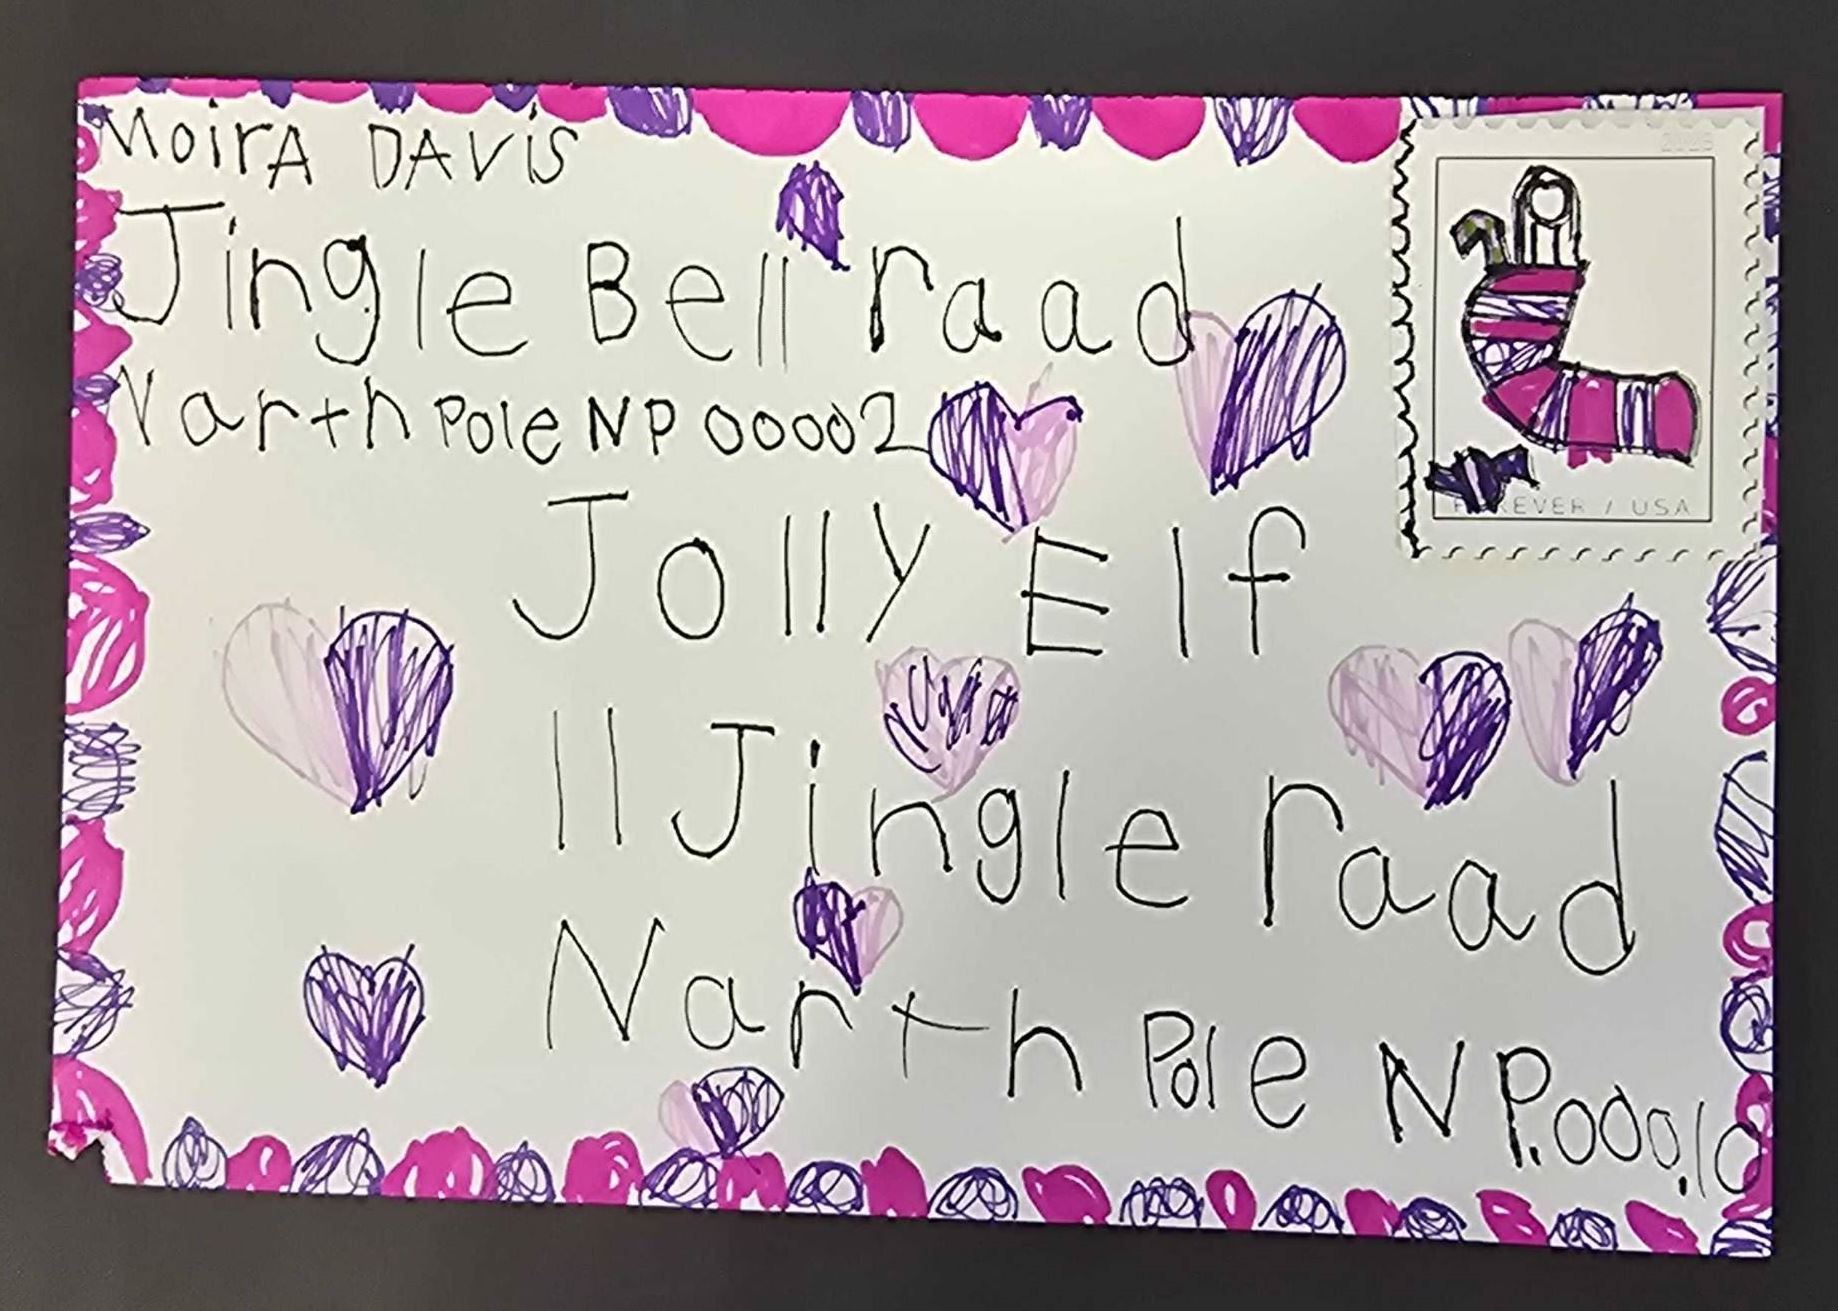 MoirA DAVis
Jingle Bell raad
Narth Pole NP 00002
2023
FOREVER / USA
Jolly Elf
11 Jingle raad
Narth Pole NP.000.10